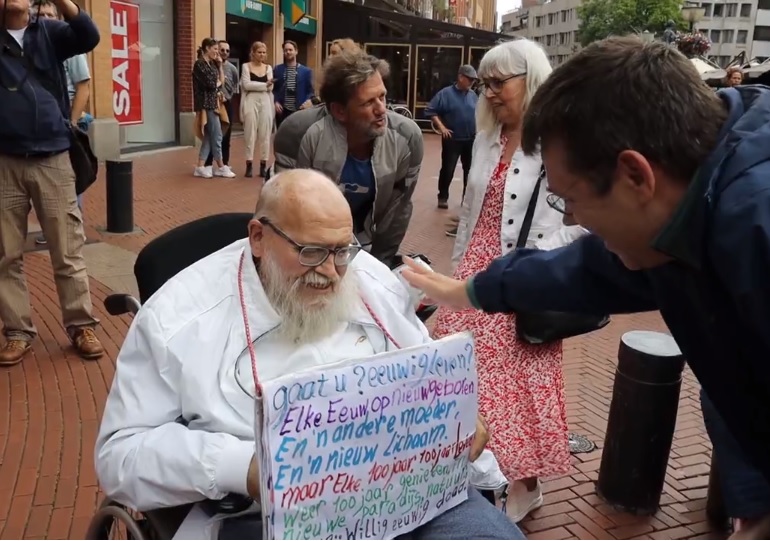 SALE
gaat u ? eeuwig leven?
Elke Eeuw, op nieuwgeboren
En 'n andere moeder.
En 'n nieuw Lichaam.
maar Elke 100 jaar, 100 jaar
weer 100 jaar genieten
nieuwe paradijs, natuur
willig eeuwig dood